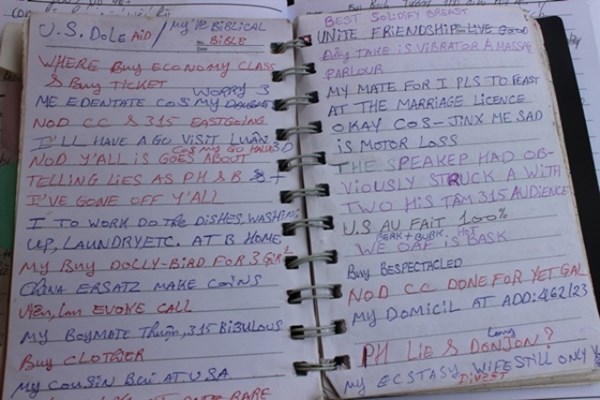 U.S. DOLE AID / MY VE BIBLICAL
BIBLE
WHERE BUY ECONOMY CLASS
& BUY TICKET
WORRY 3
ME EDENTATE COS MY
NOD CC & 315 EASTGOING
I'LL HAVE A GO VISIT LUÂN
COS MY GO
NOD Y'ALL IS GOES ABOUT
TELLING LIES AS PH & B
I'VE GONE OFF Y'ALL
I TO WORK DO THE DISHES, WASHING
UP, LAUNDRY ETC. AT B HOME
MY BUY DOLLY-BIRD FOR 3
CHINA ERSATZ MAKE COINS
EVOKE CALL
MY BOYMATE THUẬN, 315 BIBULOUS
BUY CLOTHIER
MY COUSIN BUI AT USA
RARE
BEST SOLIDIFY BREAST
UNITE FRIENDSHIPS LIVE GOOD
TAKE IS VIBRATOR A MASSAGE
PARLOUR
MY MATE FOR I PLS TO FEAST
AT THE MARRIAGE LICENCE
OKAY COS - JINX ME SAD
IS MOTOR LOSS
THE SPEAKER HAD OB-
VIOUSLY STRUCK A WITH
TWO HIS TÂM 315 AUDIENCE
U.S AU FAIT 100%
BERK + BURK, HOT
WE OAF IS BASK
BUY BESPECTACLED
NOD CC DONE FOR YET GAL
MY DOMICIL AT ADD: 462/23
LONG
PH LIE & DONJON?
MY ECSTASY, WIFE STILL ONLY
DIVEST